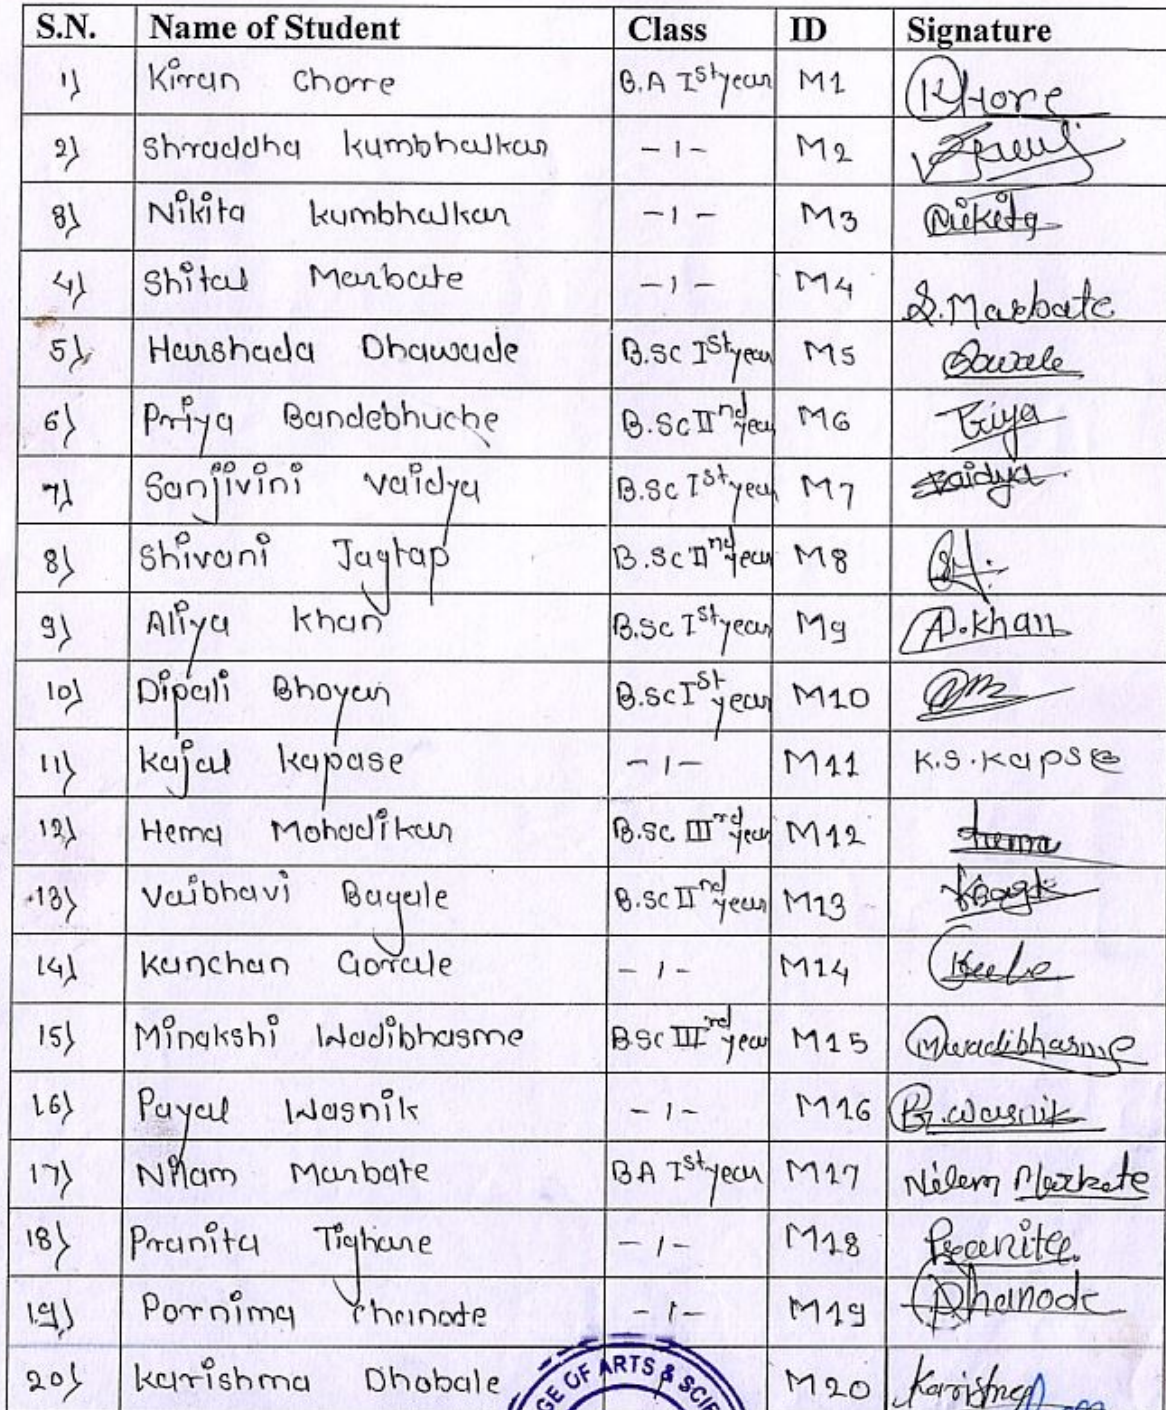 S.N. Name of Student Class ID Signature
1) Kiran Chore B.A Ist year M1 Khore
2) Shraddha kumbhalkar -1- M2
3) Nikita kumbhalkar -1- M3 Nikita
4) Shital Marbate -1- M4 S.Marbate
5) Harshada Dhawade B.Sc Ist year M5
6) Priya Bandebhuche B.Sc IInd year M6 Priya
7) Sanjivini vaidya B.Sc Ist year M7 vaidya
8) Shivani Jagtap B.Sc IInd year M8
9) Aliya khan B.Sc Ist year M9 A.khan
10) Dipali Bhoyar B.Sc Ist year M10
11) kajal kapase -1- M11 K.S.Kapse
12) Hema Mohadikar B.Sc IIIrd year M12 Hema
13) Vaibhavi Bagale B.Sc IInd year M13
14) Kanchan Gorale -1- M14
15) Minakshi Wadibhasme B.Sc IIIrd year M15 Mwadibhasme
16) Payal Wasnik -1- M16 P.wasnik
17) Nilam Marbate BA Ist year M17 Nilem Marbate
18) Pranita Tighare -1- M18 Pranita
19) Pornima Dhanode -1- M19 Dhanode
20) karishma Dhobale 1 M20 Karishma
GE OF ARTS & SCI